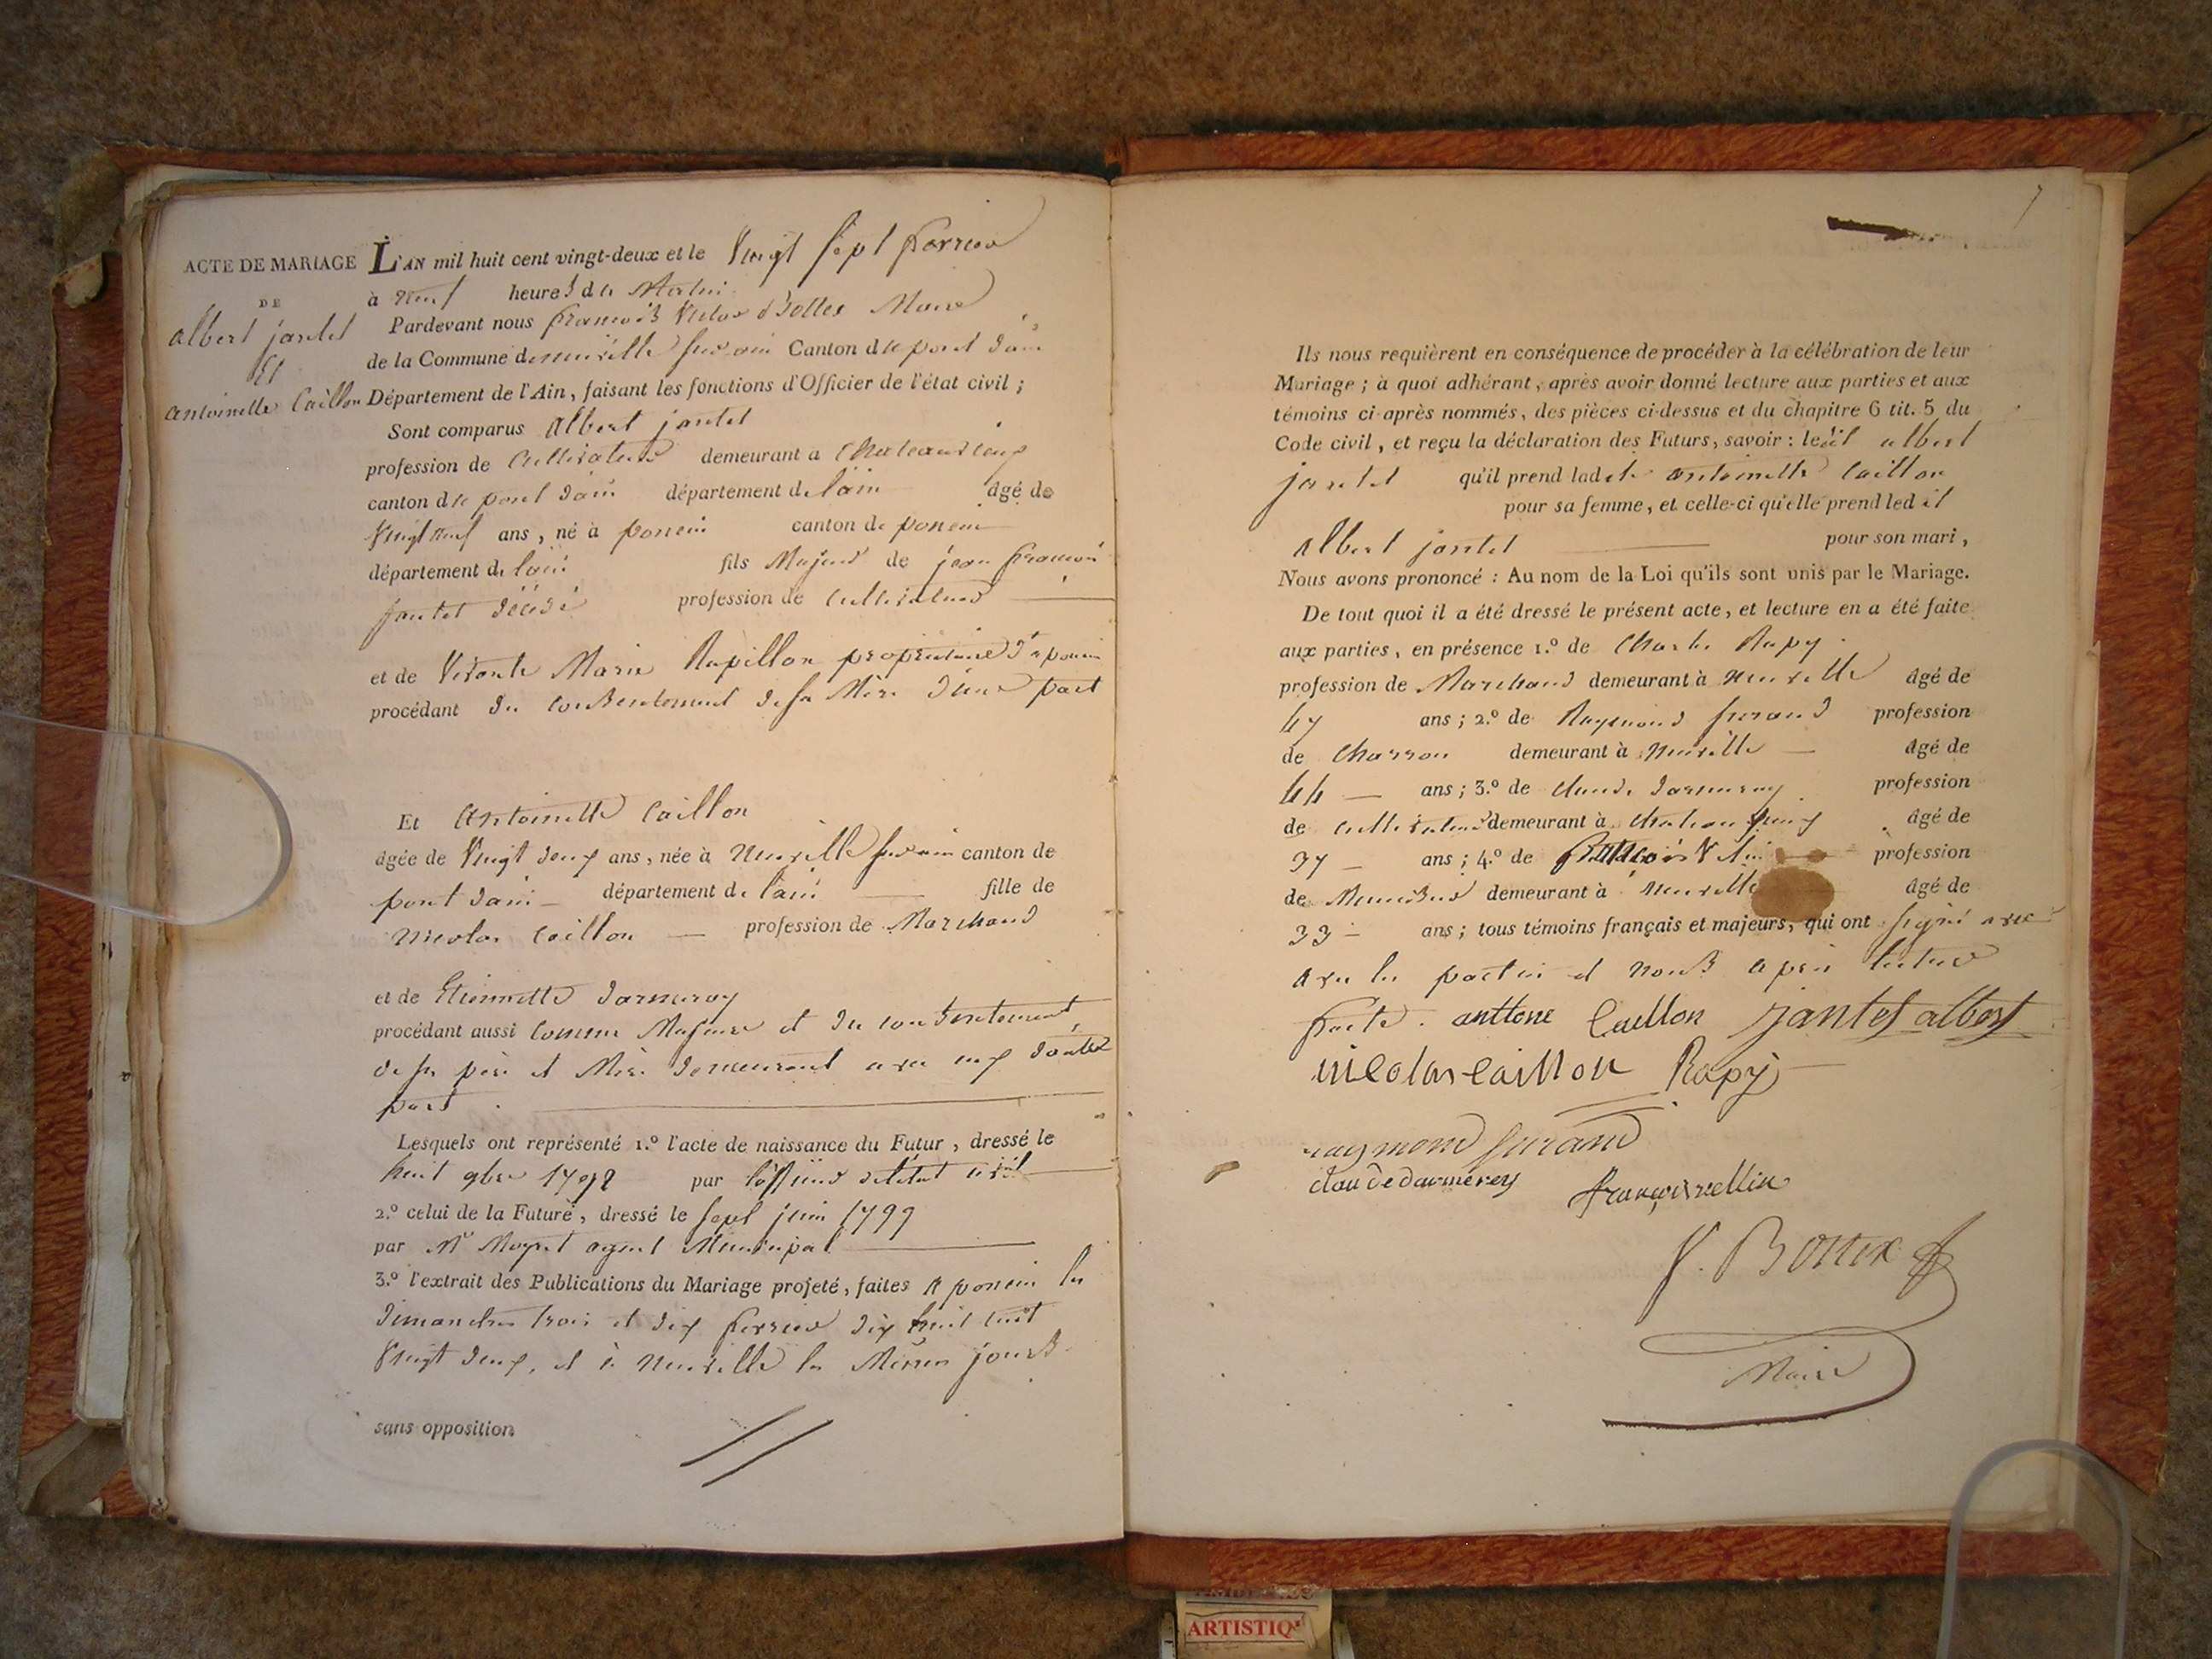 ACTE DE MARIAGE
DE
albert jantet
Et
antoinette Caillon
L'AN mil huit cent vingt-deux et le Vingt Sept fevrier
à neuf heures du Matin
Pardevant nous francois Maire
de la Commune de neuville sur ain Canton de pont dain
Département de l'Ain, faisant les fonctions d'Officier de l'état civil ;
Sont comparus albert jantet
profession de Cultivateur demeurant a Chateauvieux
canton de pont dain département de lain âgé de
Vingt neuf ans, né à poncin canton de poncin
département de lain fils Majeur de jean francois
jantet décédé profession de Cultivateur
et de Marie Rapillon propriétaire a poncin
procédant du Consentement de sa Mère d'une part
Et Antoinette Caillon
âgée de Vingt deux ans, née à Neuville sur ain canton de
pont dain département de lain fille de
Nicolas Caillon profession de Marchand
et de Etiennette darmeray
procédant aussi Comme Majeure et du consentement
de ses père et Mère demeurant avec eux dautre
part.
Lesquels ont représenté 1.º l'acte de naissance du Futur, dressé le
huit 9bre 1792 par l'officier de l'état civil
2.º celui de la Future, dressé le sept juin 1799
par Mr Moyret agent Municipal
3.º l'extrait des Publications du Mariage projeté, faites a poncin les
dimanches trois et dix fevrier dix huit cent
Vingt deux, et à Neuville les Mêmes jours
sans opposition
7
Ils nous requièrent en conséquence de procéder à la célébration de leur
Mariage ; à quoi adhérant, après avoir donné lecture aux parties et aux
témoins ci-après nommés, des pièces ci-dessus et du chapitre 6 tit. 5 du
Code civil, et reçu la déclaration des Futurs, savoir : ledit albert
jantet qu'il prend ladite antoinette Caillon
pour sa femme, et celle-ci qu'elle prend ledit
Albert jantet pour son mari,
Nous avons prononcé : Au nom de la Loi qu'ils sont unis par le Mariage.
De tout quoi il a été dressé le présent acte, et lecture en a été faite
aux parties, en présence 1.º de Charles Rapy
profession de Marchand demeurant à Neuville âgé de
47 ans ; 2.º de Raymond profession
de Charron demeurant à Neuville âgé de
44 ans ; 3.º de claude darmeray profession
de cultivateur demeurant à Chateauvieux âgé de
37 ans ; 4.º de François profession
de Menuisier demeurant à Neuville âgé de
33 ans ; tous témoins français et majeurs, qui ont signé avec
avec les parties et nous après lecture
faite. anttone Caillon jantet albert
nicolas caillon Rapy
raymond
claude darmerey françois vellin
Maire
ARTISTIQ